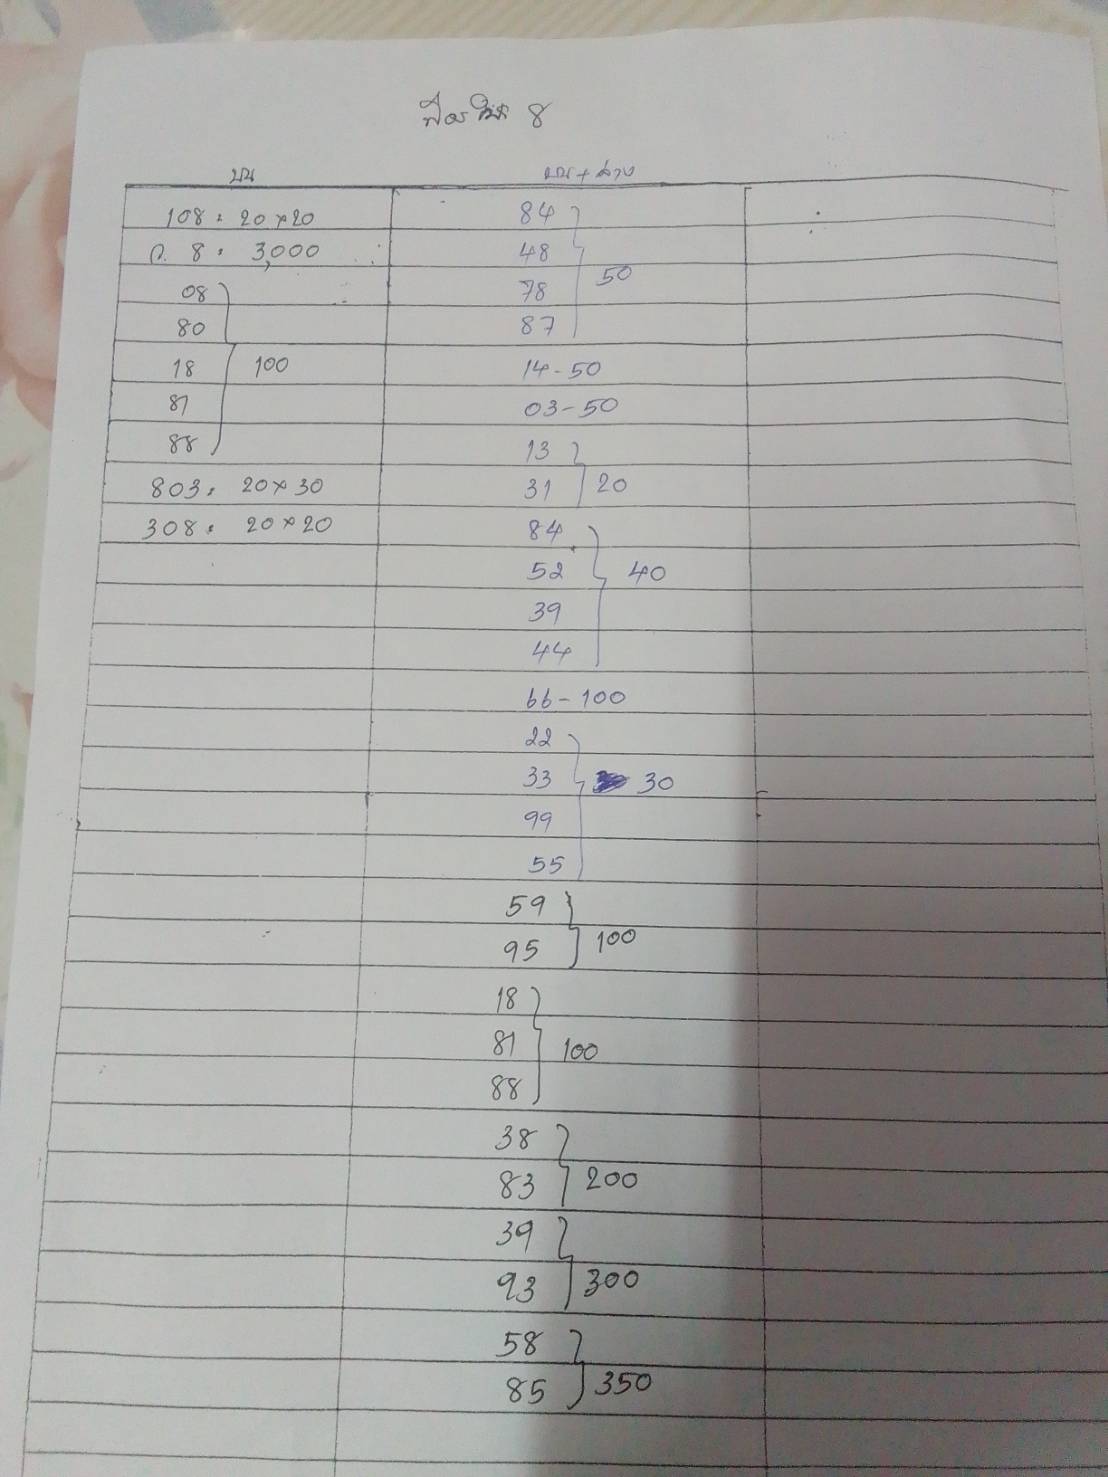 8
บน
บน+ล่าง
108 = 20×20
ก. 8 = 3,000
08
80
18
81
88
100
803 = 20×30
308 = 20×20
84
48
78
87
50
14-50
03-50
13
31
20
84
52
39
44
40
66-100
22
33
99
55
30
59
95
100
18
81
88
100
38
83
200
39
93
300
58
85
350